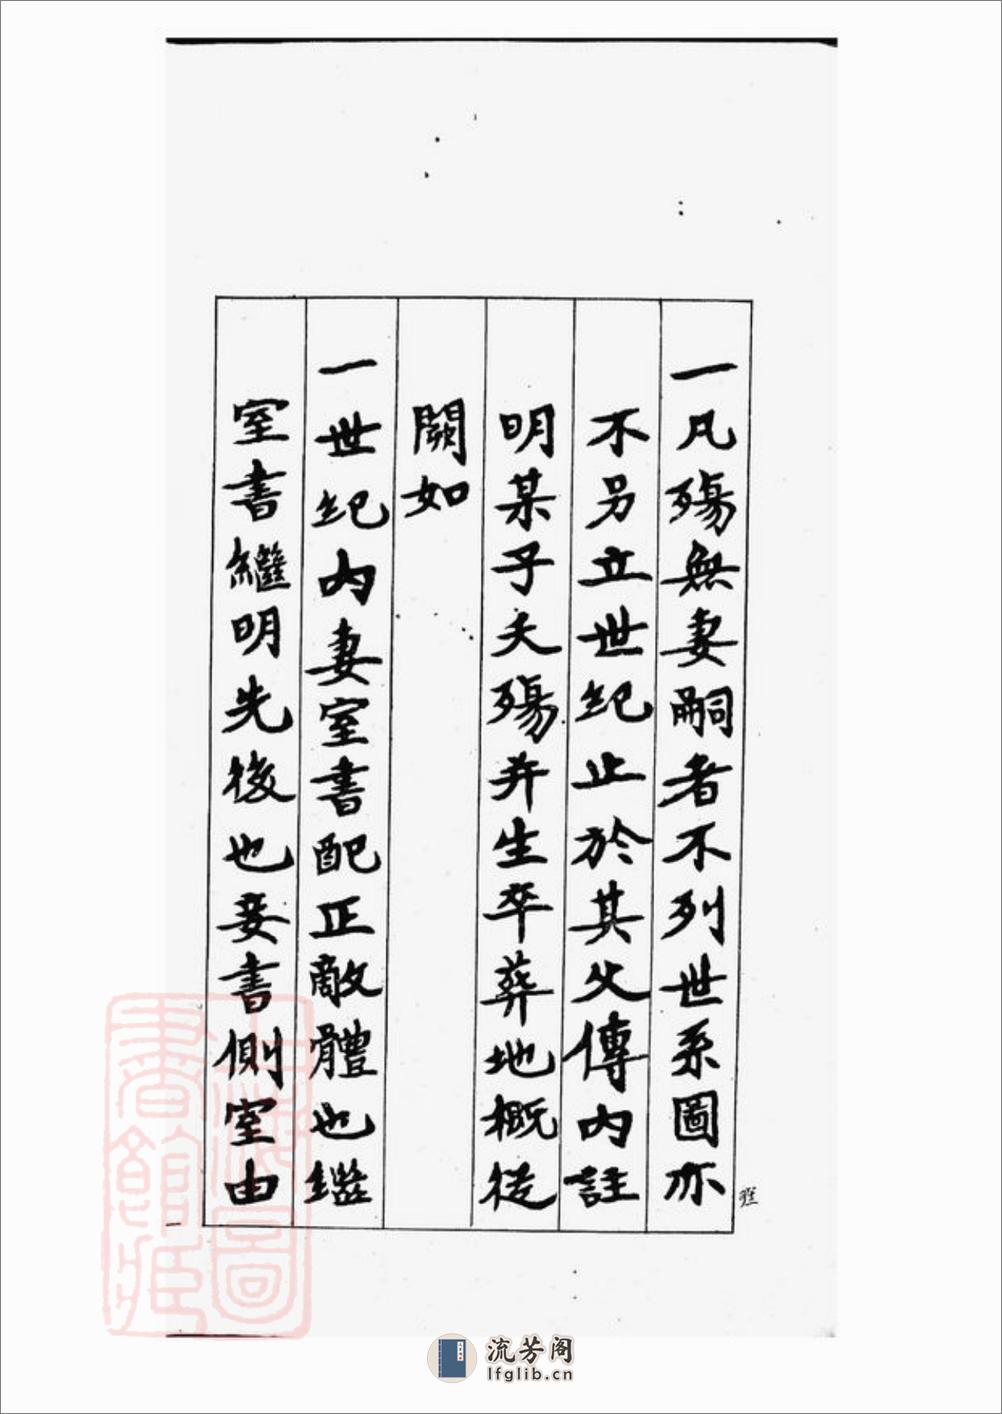 一凡殤無妻嗣者不列世系圖亦
不另立世紀止於其父傳內註
明某子夭殤并生卒葬地概從
闕如
一世紀內妻室書配正敵體也繼
室書繼明先後也妾書側室由
流芳阁
lfglib.cn